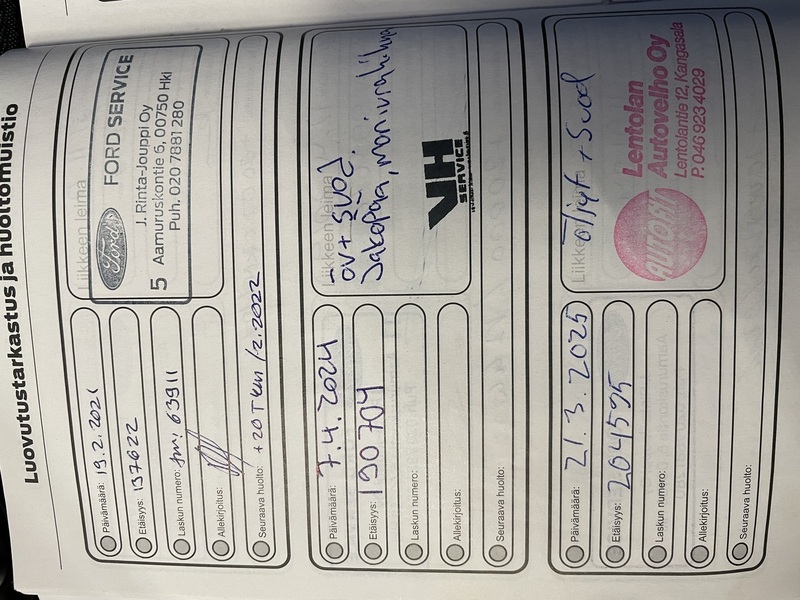 Luovutustarkastus ja huoltomuistio
Päivämäärä: 19.2.2021
Etäisyys: 137622
Laskun numero: 63911
Allekirjoitus:
Seuraava huolto: +20 Tkm /2.2022
Liikkeen leima
Ford
FORD SERVICE
J. Rinta-Jouppi Oy
5 Aamuruskontie 6, 00750 Hki
Puh. 020 7881 280
Päivämäärä: 7.4.2024
Etäisyys: 190704
Laskun numero:
Allekirjoitus:
Seuraava huolto:
Liikkeen leima
- öv+ suod.
Jakopää,
VH
SERVICE
Päivämäärä: 21.3.2025
Etäisyys: 204595
Laskun numero:
Allekirjoitus:
Seuraava huolto:
Liikkeen leima
öljyt + Suod
AUTORIN
Lentolan
Autovelho Oy
Lentolantie 12, Kangasala
P. 046 923 4029